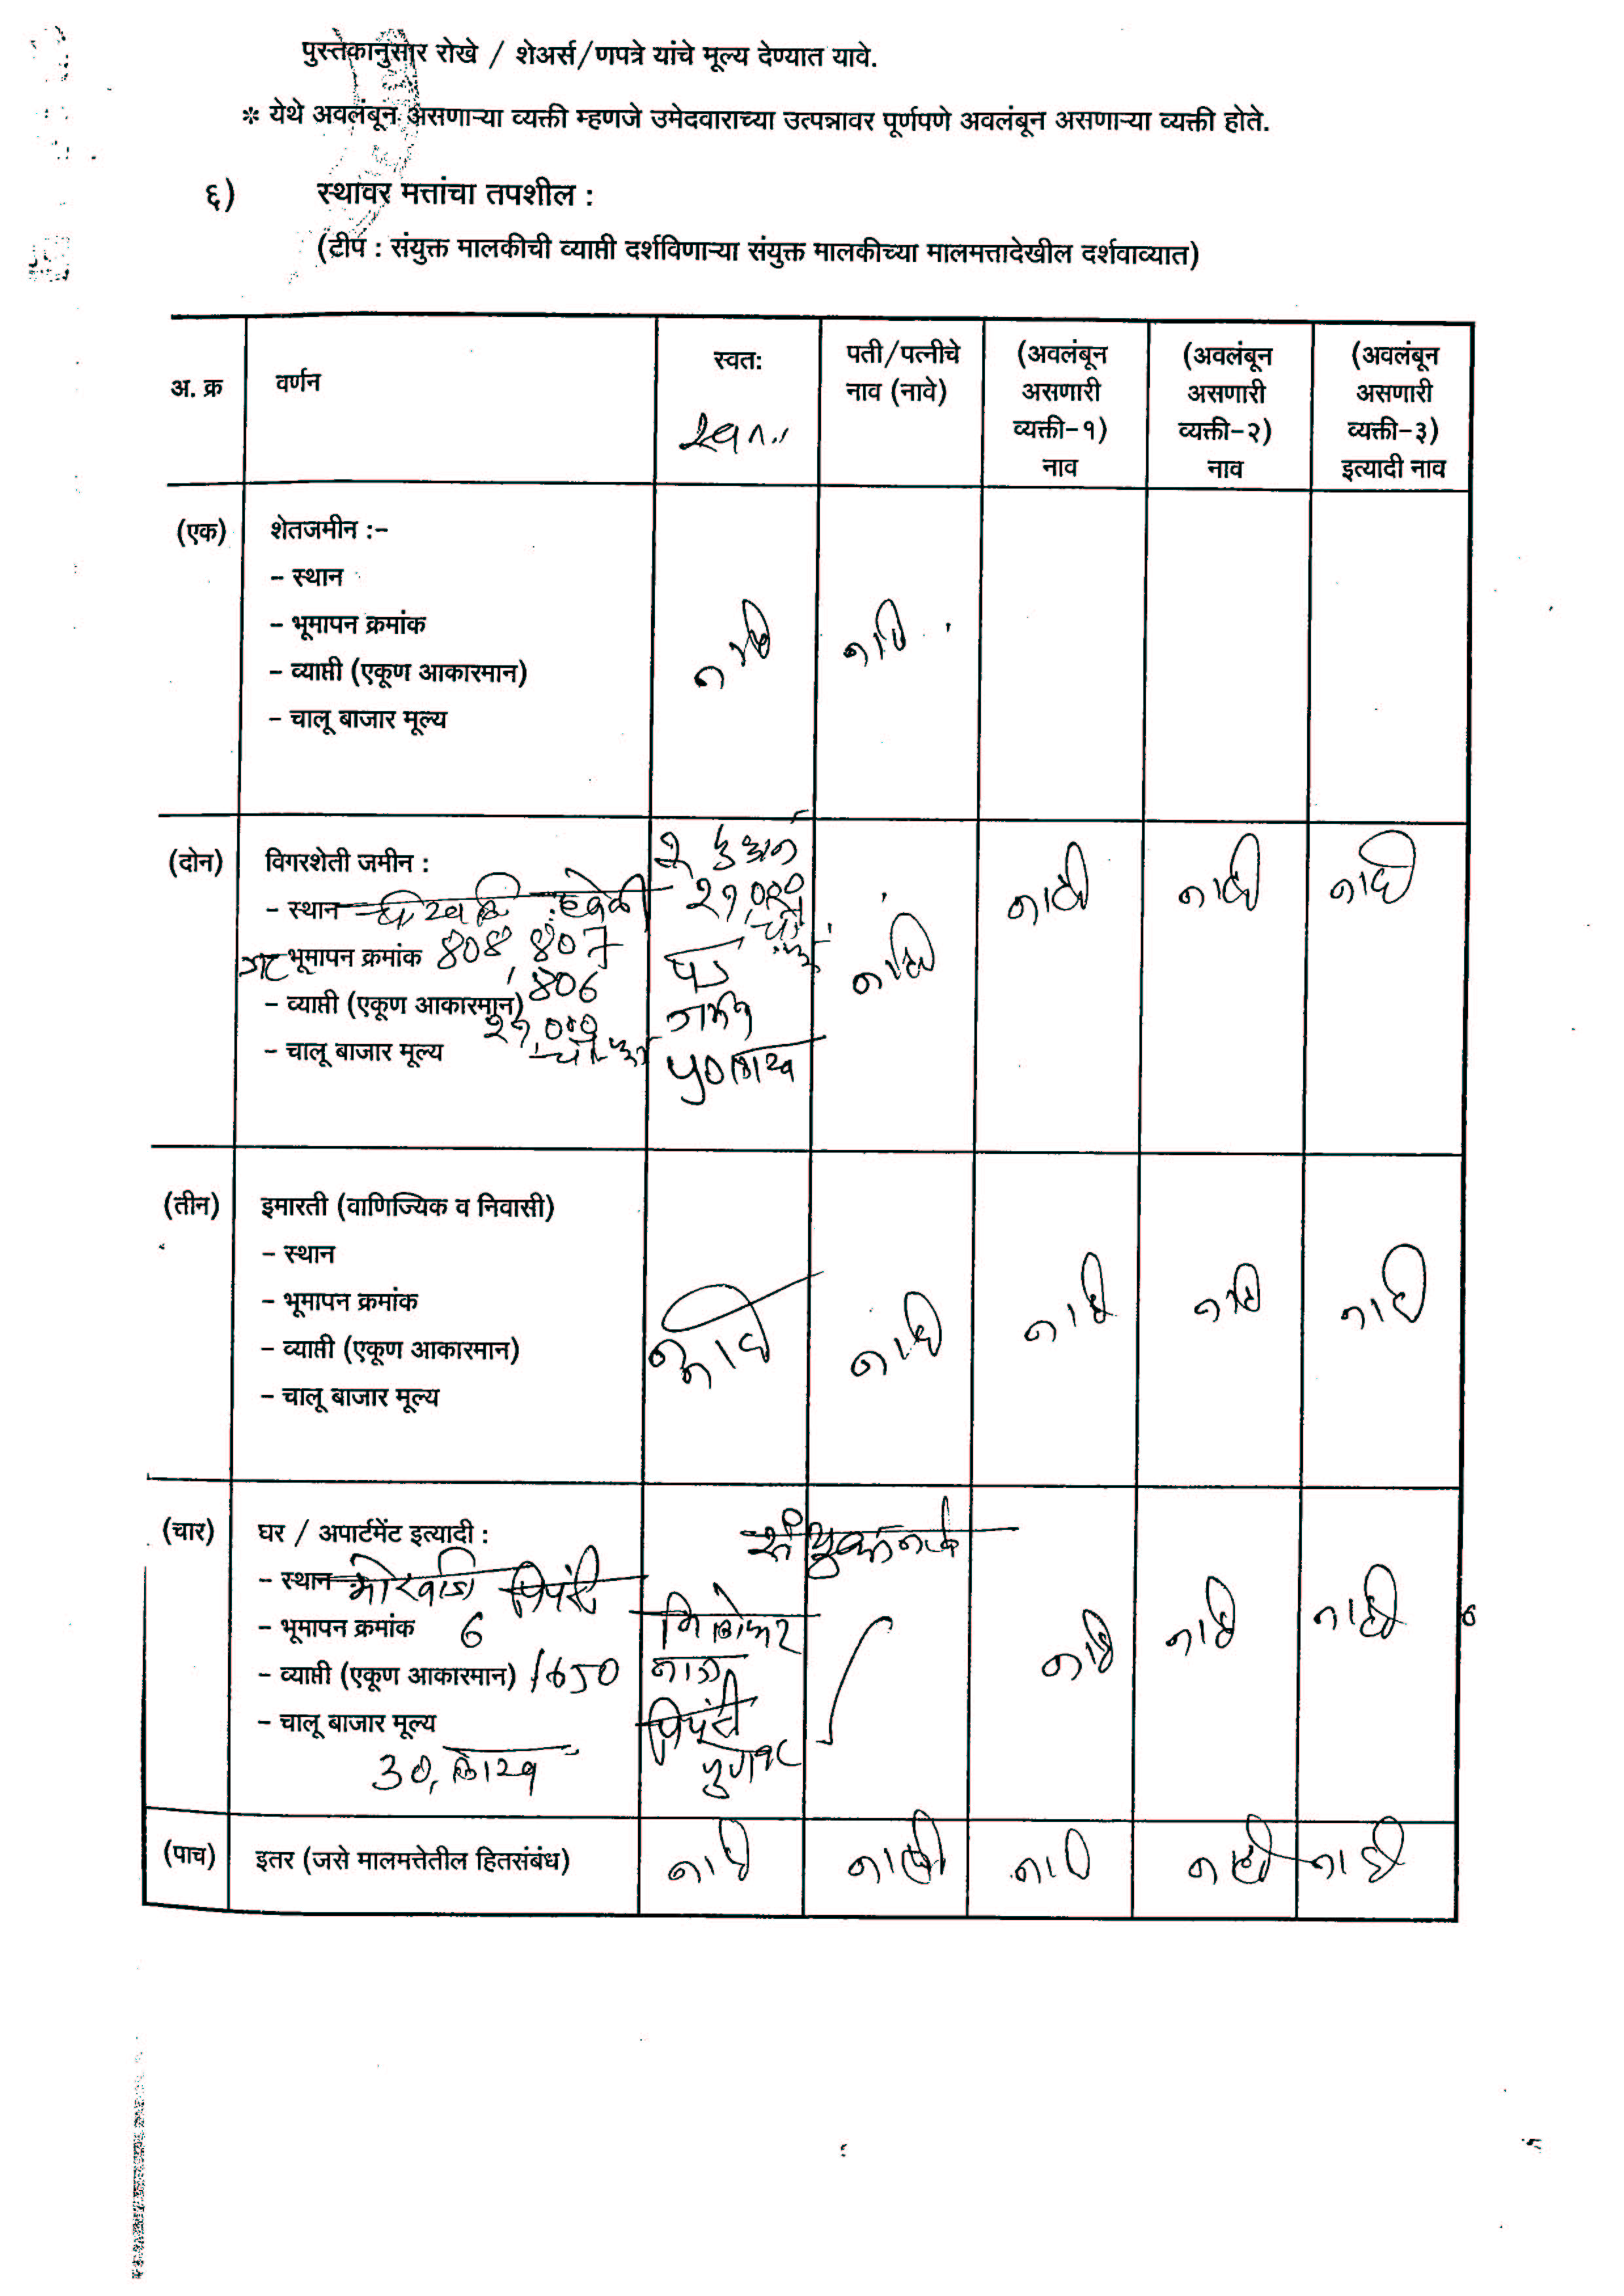 पुस्तकानुसार रोखे / शेअर्स/णपत्रे यांचे मूल्य देण्यात यावे.
* येथे अवलंबून असणाऱ्या व्यक्ती म्हणजे उमेदवाराच्या उत्पन्नावर पूर्णपणे अवलंबून असणाऱ्या व्यक्ती होते.
६) स्थावर मत्तांचा तपशील :
(टीप : संयुक्त मालकीची व्याप्ती दर्शविणाऱ्या संयुक्त मालकीच्या मालमत्तादेखील दर्शवाव्यात)
अ. क्र वर्णन स्वत: पती/पत्नीचे नाव (नावे) (अवलंबून असणारी व्यक्ती-१) नाव (अवलंबून असणारी व्यक्ती-२) नाव (अवलंबून असणारी व्यक्ती-३) इत्यादी नाव
(एक) शेतजमीन :-
- स्थान
- भूमापन क्रमांक नाही नाही
- व्याप्ती (एकूण आकारमान)
- चालू बाजार मूल्य
(दोन) विगरशेती जमीन :
- स्थान हवेली २१,००० नाही नाही नाही
गट भूमापन क्रमांक 808, 807 पड नाही
- व्याप्ती (एकूण आकारमान) ,806
२१,००० चौ. फु जमीन
- चालू बाजार मूल्य ५० लाख
(तीन) इमारती (वाणिज्यिक व निवासी)
- स्थान
- भूमापन क्रमांक नाही नाही नाही
- व्याप्ती (एकूण आकारमान) नाही नाही
- चालू बाजार मूल्य
(चार) घर / अपार्टमेंट इत्यादी : संयुक्त नावे
- स्थान मोरवाडी पिंपरी
- भूमापन क्रमांक 6 नाही नाही नाही
- व्याप्ती (एकूण आकारमान) 1650
- चालू बाजार मूल्य पिंपरी
30, लाख
(पाच) इतर (जसे मालमत्तेतील हितसंबंध) नाही नाही नाही नाही नाही